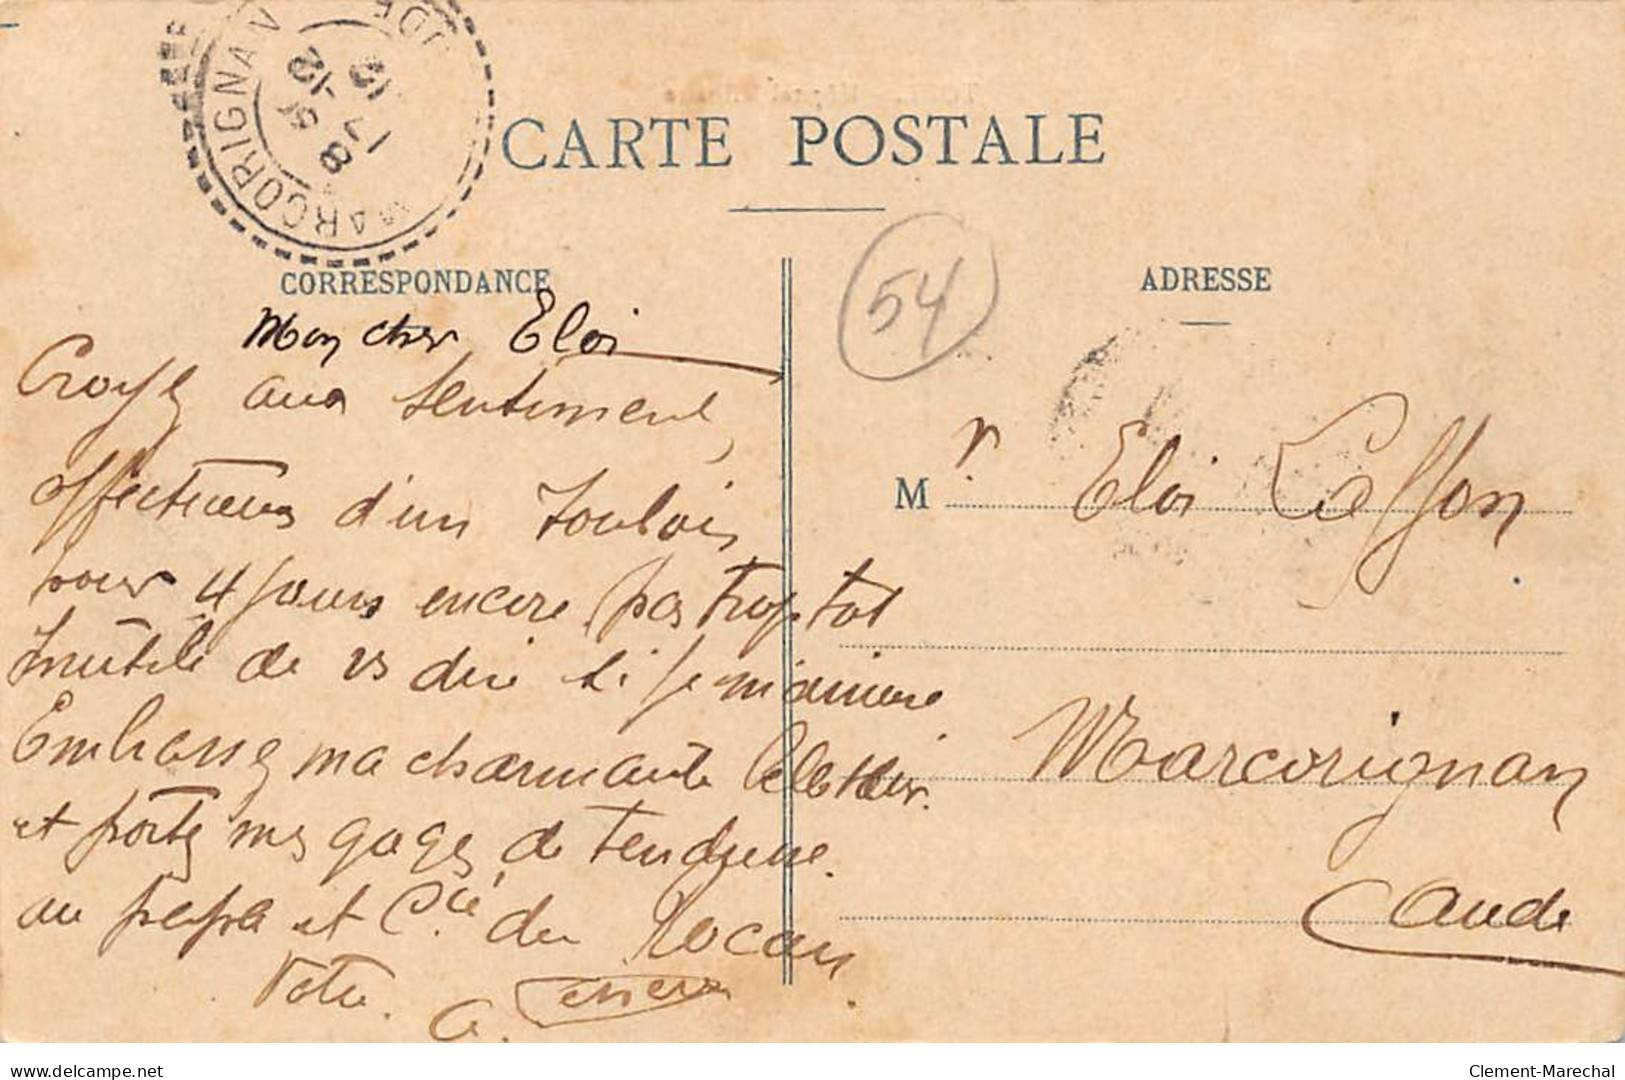 MARCORIGNAN
DE
8 - 12
CARTE POSTALE
54
CORRESPONDANCE
ADRESSE
Mon cher Eloi
Croyez aux sentiment,
affectueux d'un Toulois
pour 4 jours encore, pas trop tot
Inutile de vs dire si je m'amuse
Embrassez ma charmante
et portez mes gages de tendresse.
au papa et Cie du Rocan.
Votre. G.
M r Eloi
Marcorignan
Aude
delcampe.net
Clement-Marechal